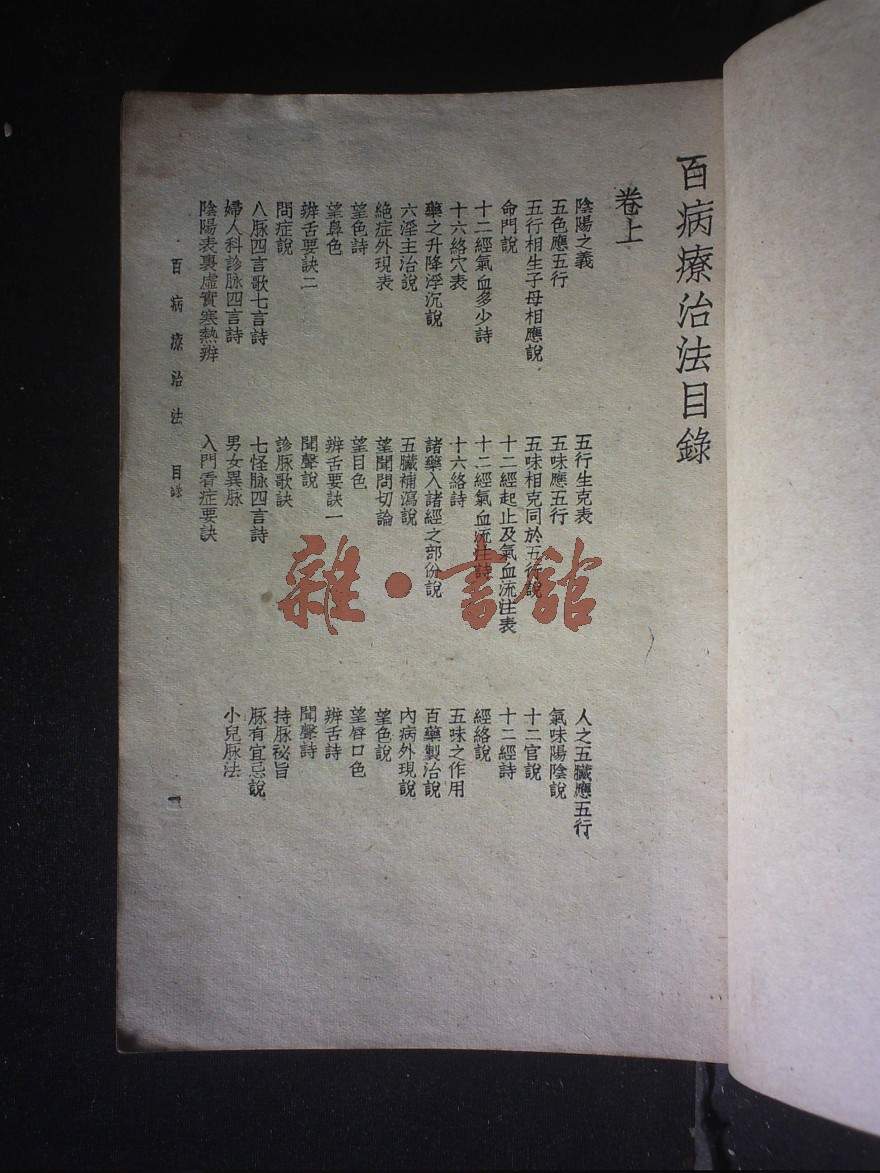 百病療治法目錄
卷上
陰陽之義 五行生克表 人之五臟應五行
五色應五行 五味應五行 氣味陽陰說
五行相生子母相應說 五味相克同於五行說 十二官說
命門說 十二經起止及氣血流注表 十二經詩
十二經氣血多少詩 十二經氣血流注詩 經絡說
十六絡穴表 十六絡詩 五味之作用
藥之升降浮沉說 諸藥入諸經之部份說 百藥製治說
六淫主治說 五臟補瀉說 內病外現說
絶症外現表 望聞問切論 望色說
望色詩 望目色 望唇口色
望鼻色 辨舌要訣一 辨舌詩
辨舌要訣二 聞聲說 聞聲詩
問症說 診脉歌訣 持脉祕旨
八脉四言歌七言詩 七怪脉四言詩 脉有宜忌說
婦人科診脉四言詩 男女異脉 小兒脉法
陰陽表裏虛實寒熱辨 入門看症要訣
百病療治法 目錄 一
雜·書館